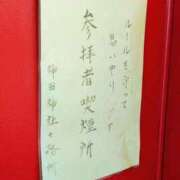 ルールを守って
思いやり
参拝者喫煙所
神田神社